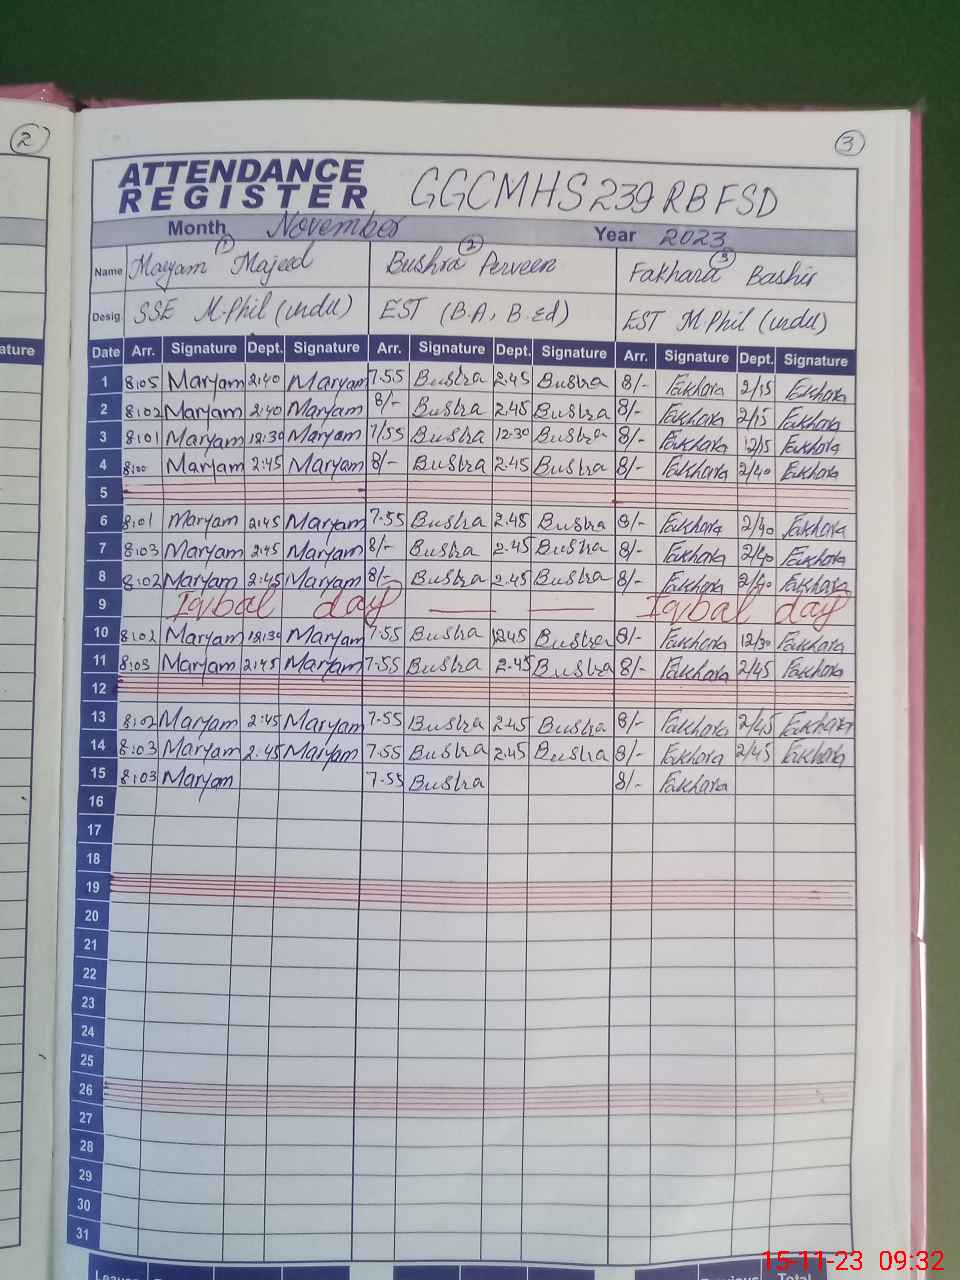 2
3
ATTENDANCE REGISTER GGCMHS 239 RB FSD
Month November Year 2023
1 2 3
Name Maryam Majeed Bushra Perveen Fakhara Bashir
Desig. SSE M.Phil (urdu) EST (B.A, B.Ed) EST M.Phil (urdu)
ature Date Arr. Signature Dept. Signature Arr. Signature Dept. Signature Arr. Signature Dept. Signature
1 8:05 Maryam 2:40 Maryam 7.55 Bushra 2.45 Bushra 8/- Fakhara 2/15 Fakhara
2 8:02 Maryam 2:40 Maryam 8/- Bushra 2.45 Bushra 8/- Fakhara 2/15 Fakhara
3 8:01 Maryam 12:30 Maryam 7/55 Bushra 12.30 Bushra 8/- Fakhara 12/15 Fakhara
4 8:00 Maryam 2:45 Maryam 8/- Bushra 2.45 Bushra 8/- Fakhara 2/40 Fakhara
5
6 8:01 Maryam 2:45 Maryam 7.55 Bushra 2.45 Bushra 8/- Fakhara 2/40 Fakhara
7 8:03 Maryam 2:45 Maryam 8/- Bushra 2.45 Bushra 8/- Fakhara 2/40 Fakhara
8 8:02 Maryam 2:45 Maryam 8/- Bushra 2.45 Bushra 8/- Fakhara 2/40 Fakhara
9 Iqbal day — — Iqbal day
10 8:02 Maryam 12:30 Maryam 7.55 Bushra 12.45 Bushra 8/- Fakhara 12/30 Fakhara
11 8:03 Maryam 2:45 Maryam 7.55 Bushra 2.45 Bushra 8/- Fakhara 2/45 Fakhara
12
13 8:02 Maryam 2:45 Maryam 7.55 Bushra 2.45 Bushra 8/- Fakhara 2/45 Fakhara
14 8:03 Maryam 2:45 Maryam 7.55 Bushra 2.45 Bushra 8/- Fakhara 2/45 Fakhara
15 8:03 Maryam 7.55 Bushra 8/- Fakhara
16
17
18
19
20
21
22
23
24
25
26
27
28
29
30
31
15-11-23 09:32